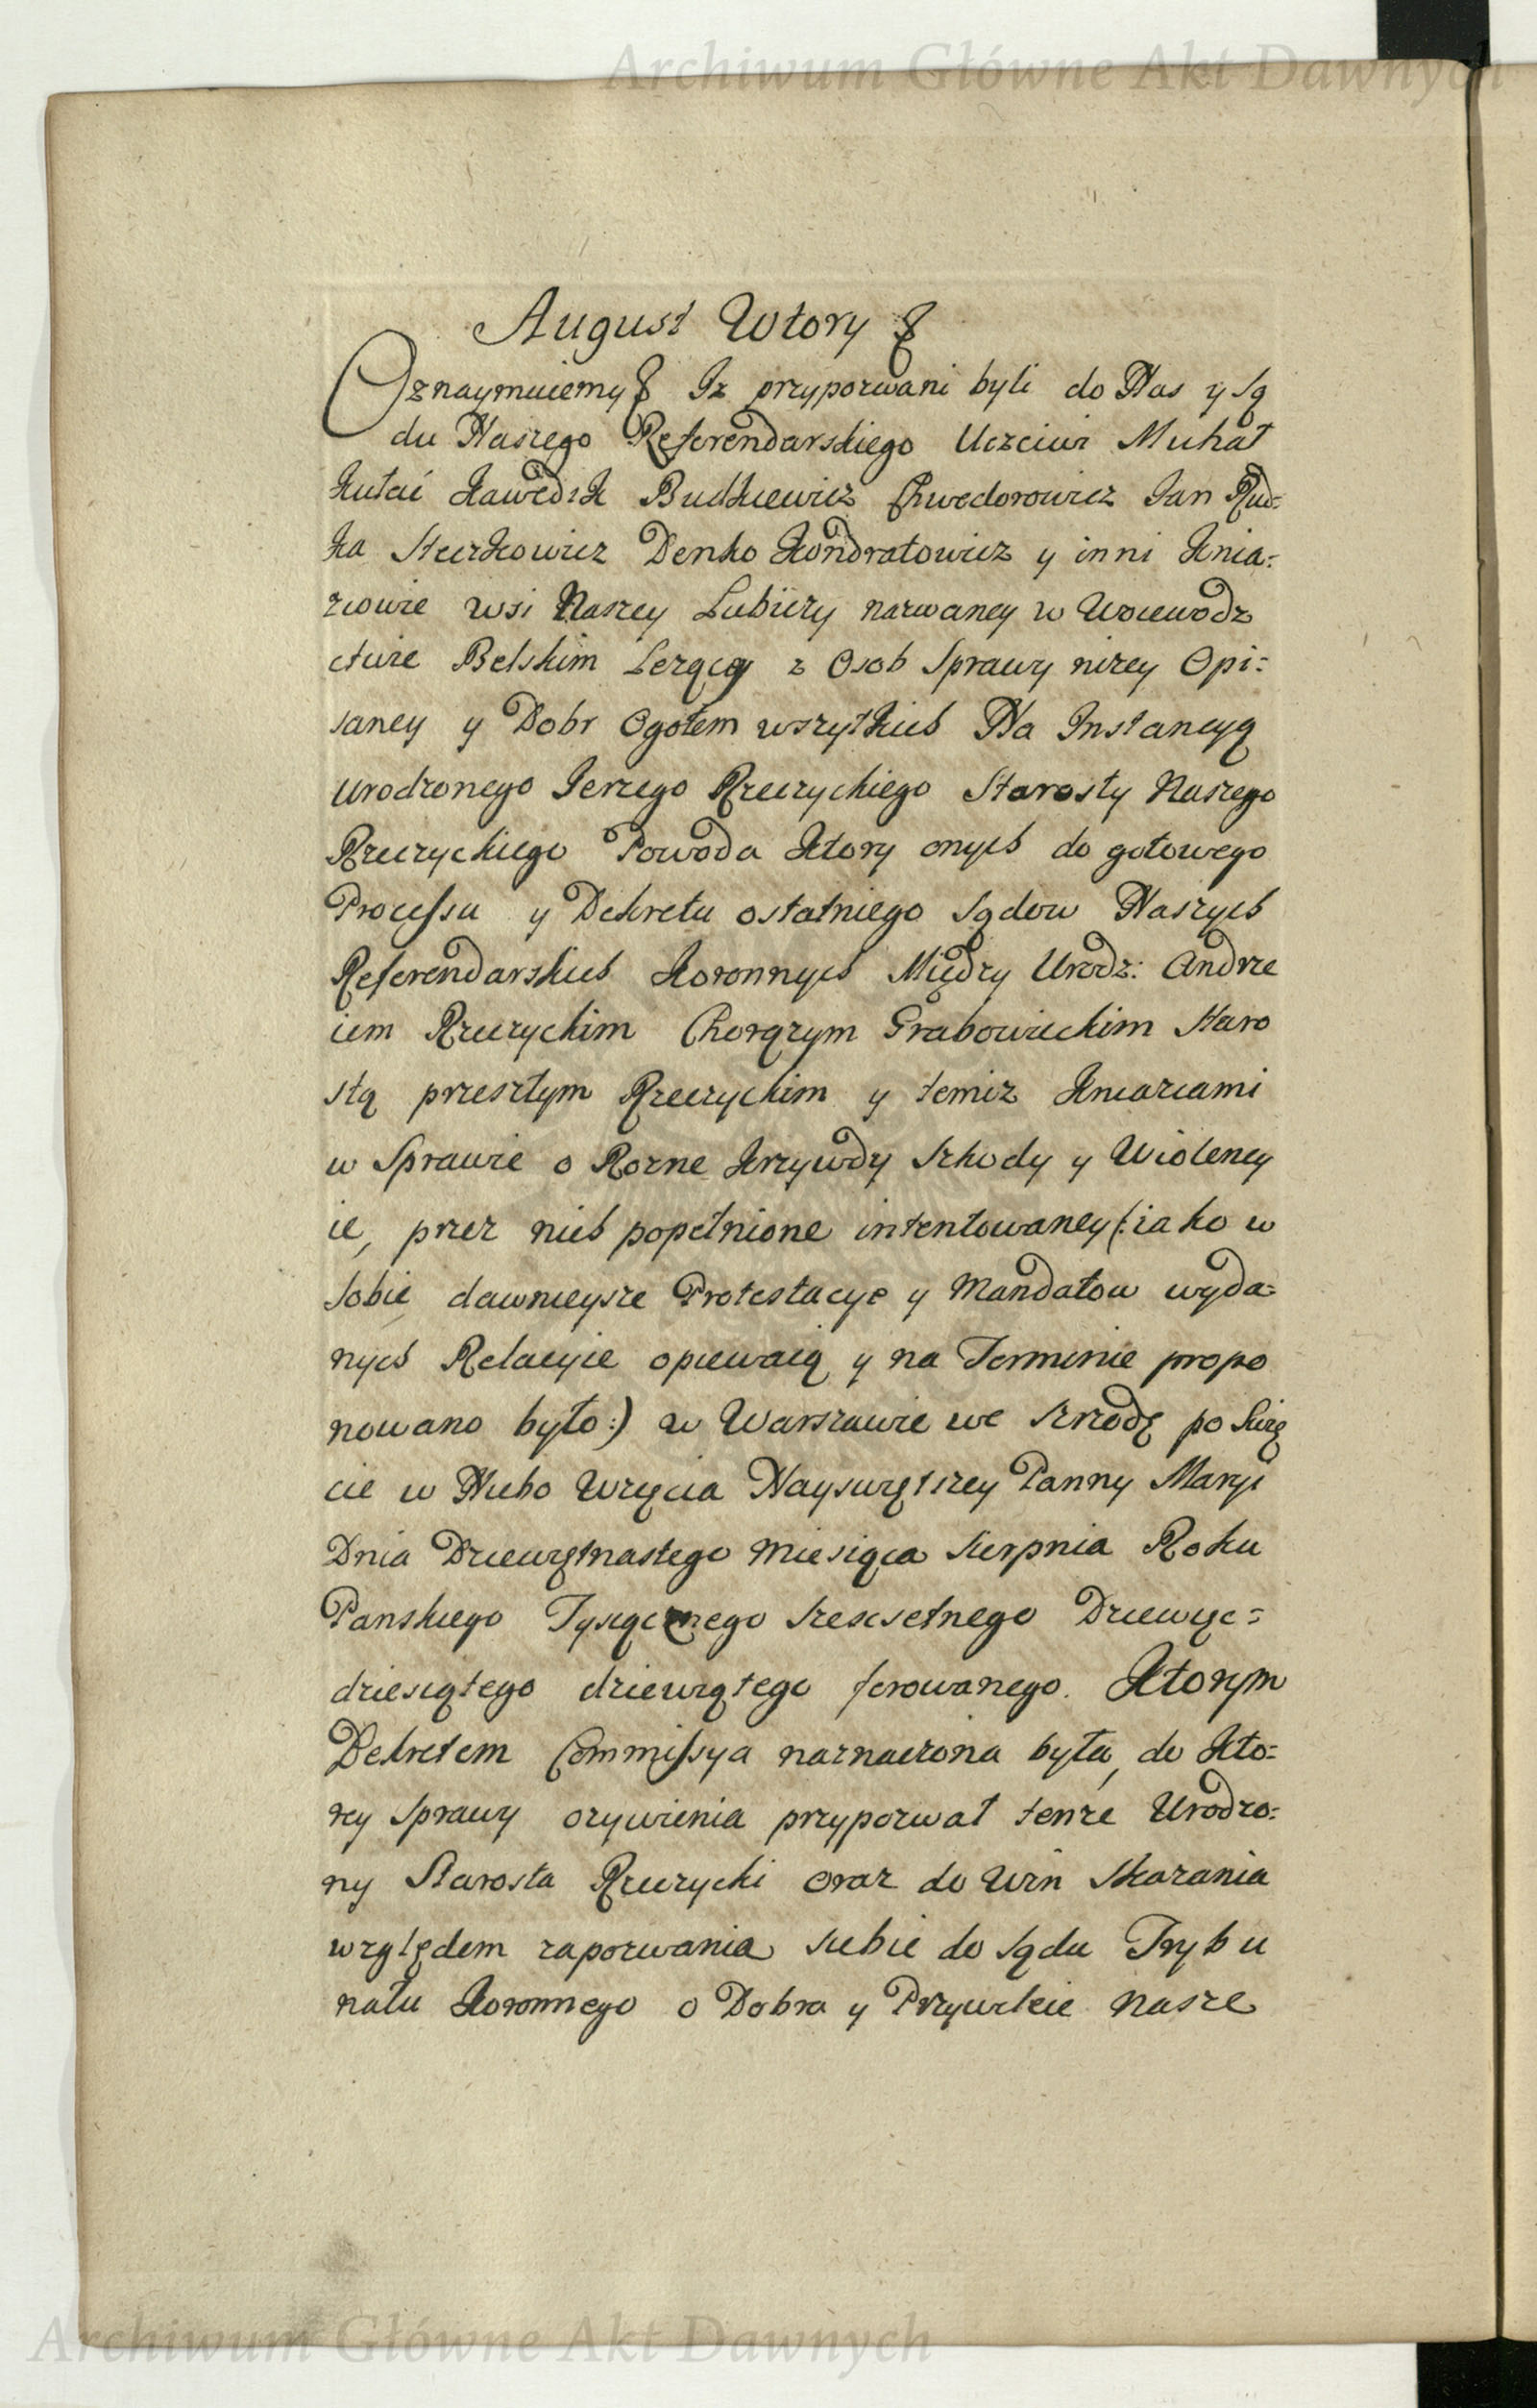 Archiwum Główne Akt Dawnych
August Wtory &
Oznaymuiemy & Iz przypozwani byli do Nas y Są
du Naszego Referendarskiego Uczciwi Michał
Kułaś Hawedzk Budkiewicz Chwedorowicz Jan Rud=
ka Steckowicz Denko Kondratowicz y inni Knia=
ziowie wsi Naszey Lubiczy nazwaney w Woiewodz
ctwie Belskim Lezącey z Osob Sprawy nizey Opi=
saney y Dobr Ogołem wszytkich Na Instancyą
Urodzonego Jerzego Rzeczyckiego Starosty Naszego
Rzeczyckiego Powoda Ktory onych do gotowego
Processu y Dekretu ostatniego Sądow Naszych
Referendarskich Koronnych Między Urodz: Andrze
iem Rzeczyckim Chorązym Grabowieckim Staro
stą przeszłym Rzeczyckim y temiz Kniaziami
w Sprawie o Rozne Krzywdy Szkody y Violency
ie, przez nich popełnione intentowaney (: iako w
sobie dawnieysze Protestacye y Mandatow wyda=
nych Relacyie opiewaią y na Terminie propo
nowano było :) w Warszawie we Szrodę po Swię
cie w Niebo Wzięcia Nayswiętszey Panny Maryi
Dnia Dziewiętnastego Miesiąca Sierpnia Roku
Panskiego Tysiącznego Szescsetnego Dziewięc=
dziesiątego dziewiątego ferowanego. Ktorym
Dekretem Commissya naznaczona była, do Kto=
rey Sprawy ozywienia przypozwał tenze Urodzo=
ny Starosta Rzeczycki oraz do Win Skazania
względem zapozwania siebie do Sądu Trybu
nału Koronnego o Dobra y Przywileie Nasze
Archiwum Główne Akt Dawnych